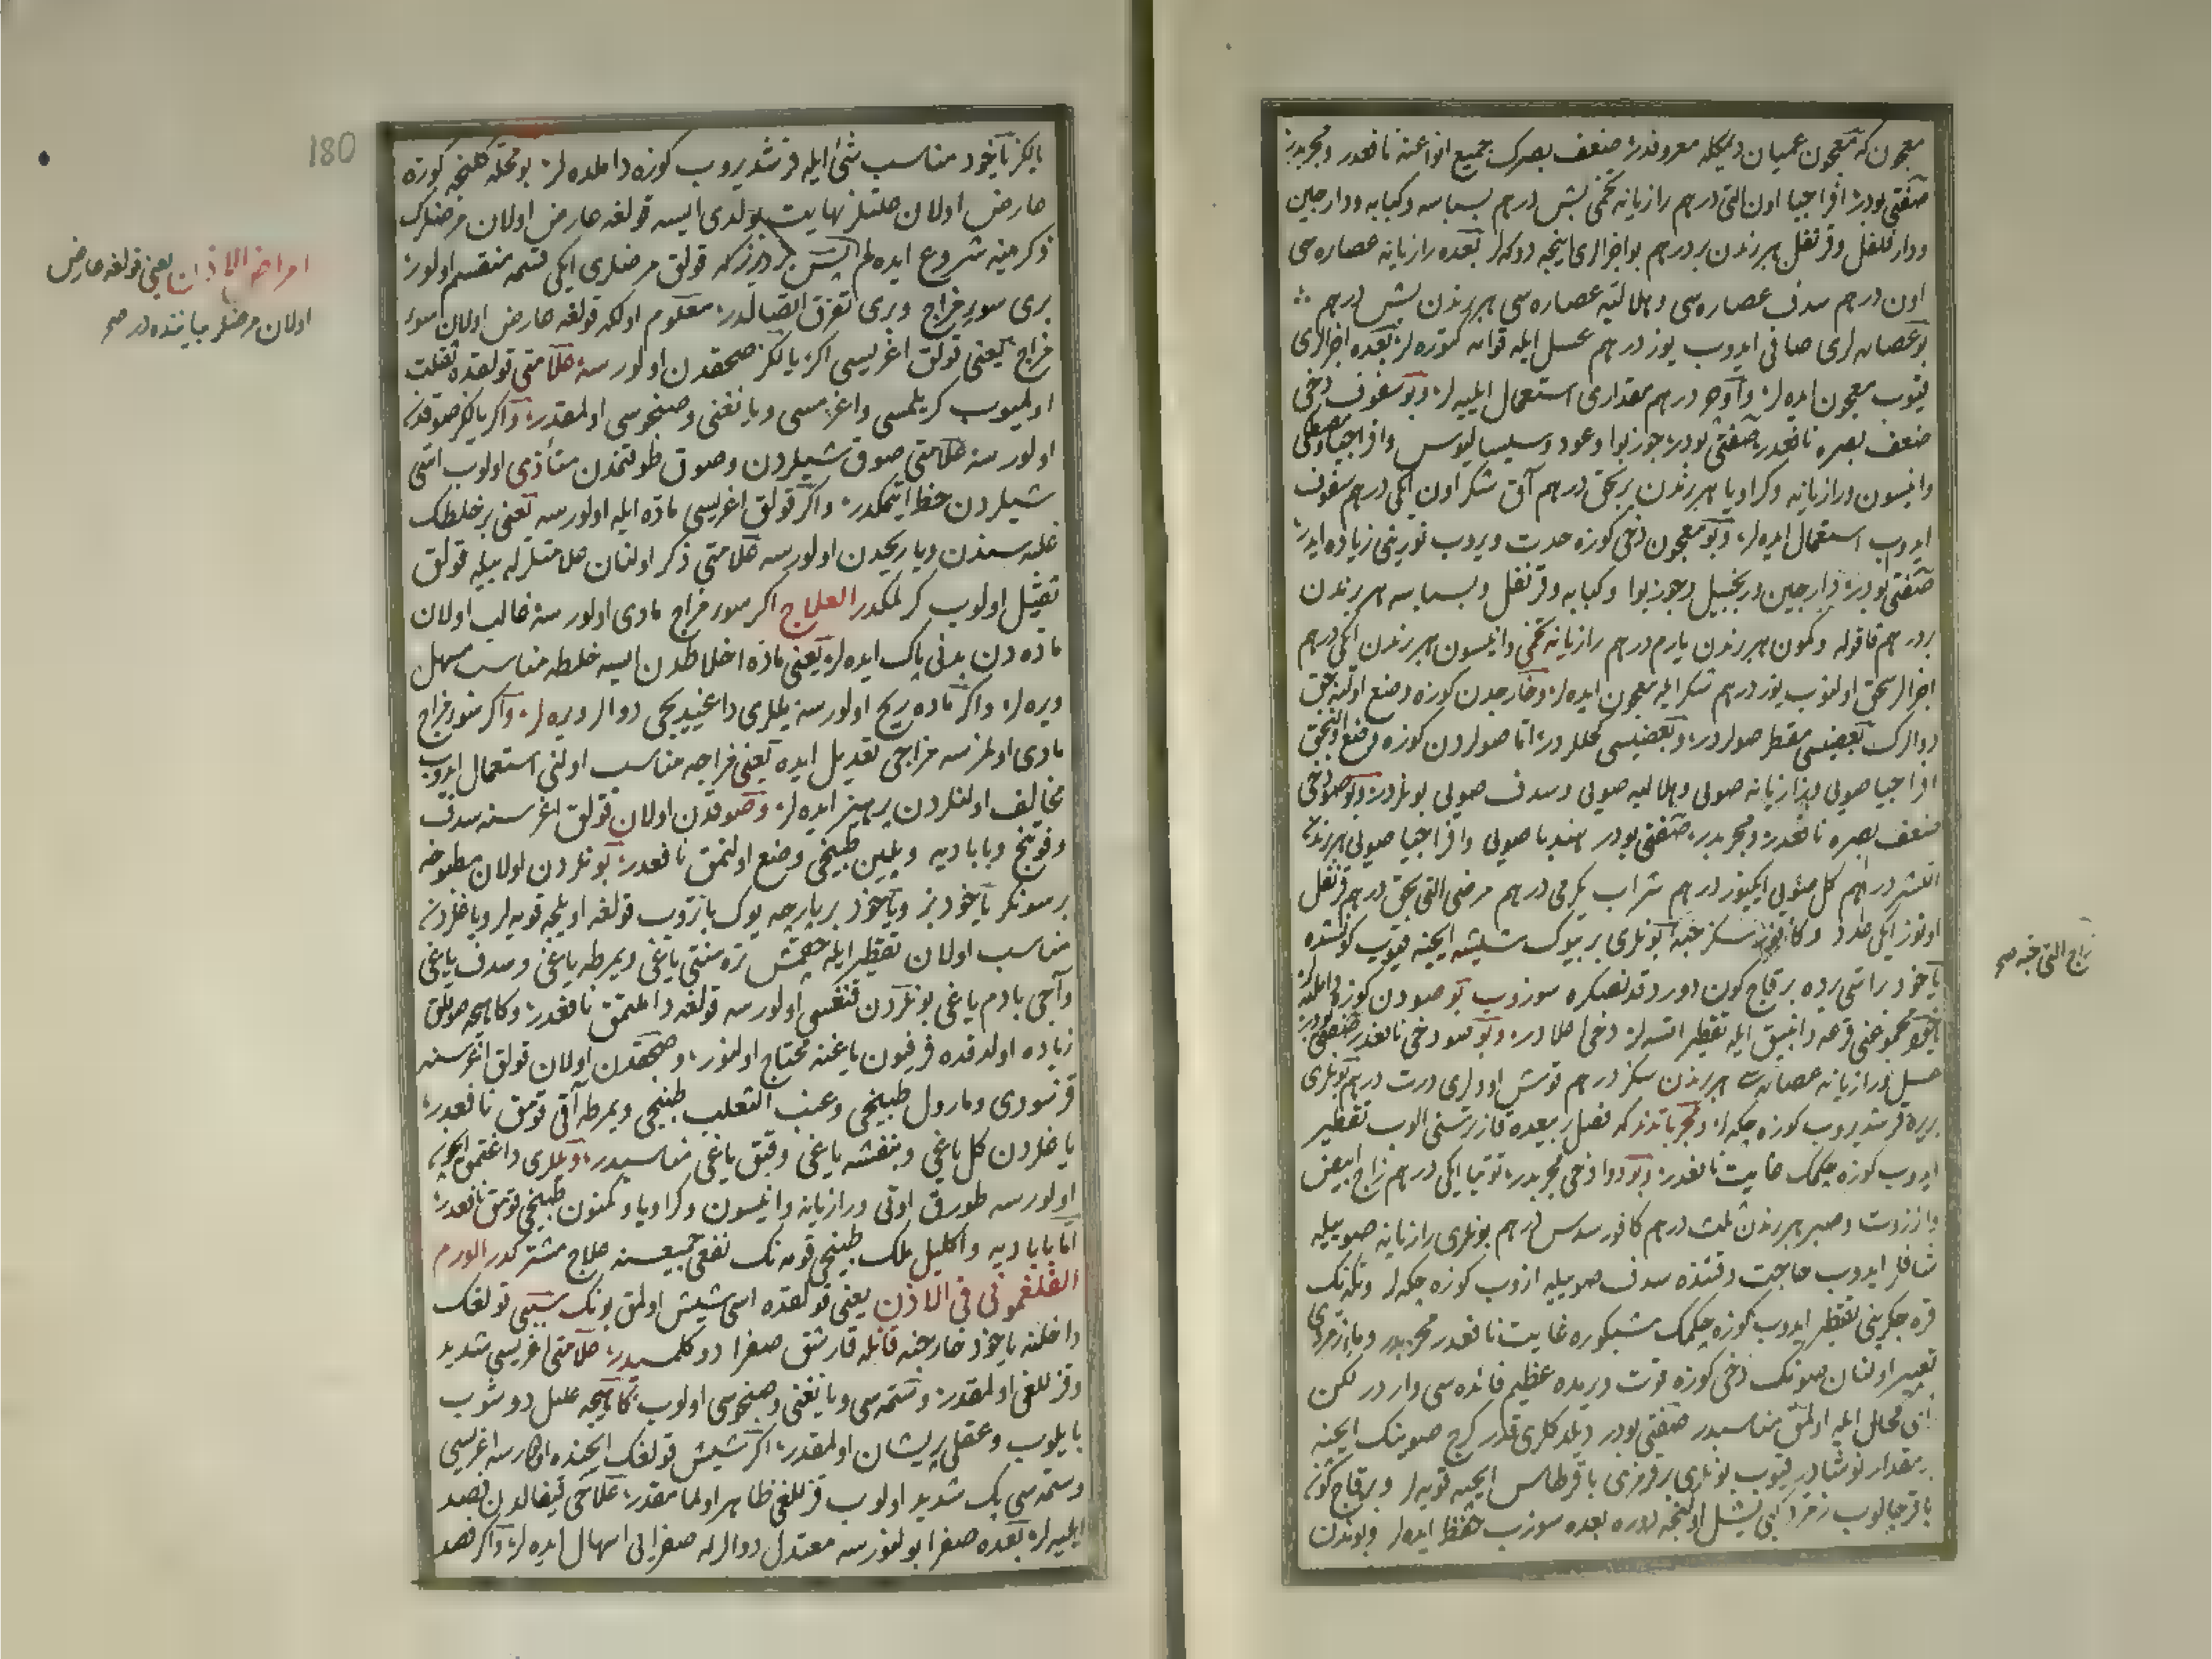 معجون که معجون عمیان دیمکله معروفدر ضعف بصرک جمیع انواعنه نافعدر و مجربدر
صفتی بودر افراجیا اون التی درهم رازیانه تخمی بش درهم بسباسه و کبابه و دارچین
و دار فلفل و قرنفل هر برندن بر درهم بو اجزالری اینجه دوکه لر بعده رازیانه عصاره سی
اون درهم سدف عصاره سی و هلالیه عصاره سی هر برندن بش درهم
بو عصاره لری صافی ایدوب یوز درهم عسل ایله قوامه کتوره لر بعده اجزالری
قیوب معجون ایده لر و اوچر درهم مقداری استعمال ایلیه لر و بو سفوف دخی
ضعف بصره نافعدر صفتی بودر جوز بوا و عود و سیسالیوس و افراجیا و مصطکی
و انیسون و رازیانه و کراویا هر برندن بر بچق درهم آق شکر اون ایکی درهم سفوف
ایدوب استعمال ایده لر و بو معجون دخی کوزه حدت ویروب نورینی زیاده ایدر
صفتی بودر دارچین و زنجبیل و جوز بوا و کبابه و قرنفل و بسباسه هر برندن
بر درهم قاقوله و کمون هر برندن یارم درهم رازیانه تخمی و انیسون هر برندن ایکی درهم
اجزالر سحق اولنوب یوز درهم شکر ایله معجون ایده لر و خارجدن کوزه وضع اولنه جق
دوالرک بعضیسی مقطر صولردر و بعضیسی کحللردر اما صولردن کوزه وضع اولنجق
افراجیا صویی و رازیانه صویی و هلالیه صویی و سدف صویی بونلردر و بو صو دخی
ضعف بصره نافعدر و مجربدر صفتی بودر هندبا صویی و افراجیا صویی هر برندن
التمشر درهم کل صویی ایکیوز درهم شراب یکرمی درهم مرضی التی بچق درهم قرنفل
اوتوز ایکی عدد و کافور سکز حبه بونلری بر بیوک شیشه ایچنه قیوب کونشده
یاخود راتی رده بر قاچ کون دوردقدنصکره سوزوب بو صودن کوزه طاملده لر
یاخود مجموعنی قرعه و انبیق ایله تقطیر اتسه لر دخی اعلادر و بو صو دخی نافعدر صفتی بودر
عسل و رازیانه عصاره سی هر برندن سکز درهم قوش اودلری درت درهم بونلری
بربره قرشدیروب کوزه چکه لر و مجرباتدندر که فصل ربیعده قازترسنی الوب تقطیر
ایدوب کوزه چکمک غایت نافعدر و بو دوا دخی مجربدر توتیا ایکی درهم زاج ابیض
و انزروت و صبر هر برندن ثلث درهم کافور سدس درهم بونلری رازیانه صوییله
شافلر ایدوب حاجت وقتنده سدف صوییله ازوب کوزه چکه لر و تکه نک
قره جکرینی تقطیر ایدوب کوزه چکمک شبکوره غایت نافعدر مجربدر و ماء زمردی
تعبیر اولنان صونک دخی کوزه قوت ویرمده عظیم فائده سی واردر لکن
انی محلل ایله اولمق مناسبدر صفتی بودر دیلدکلری قدر کرج صوینک ایچنه
بر مقدار نوشادر قیوب بونلری بر قرمزی باقر طاس ایچنه قویه لر و بر قاچ کون
باقر چالوب زمرد کبی یشل اولنجه دوره بعده سوزب حفظ ایده لر و بوندن
زاج التی حبه صح
یالکز یاخود مناسب شئ ایله قرشدیروب کوزه داملده لر بو محله کلنجه کوزه
عارض اولان علتلر نهایت بولدی ایسه قولغه عارض اولان مرضلرک
ذکرینه شروع ایده لم ایمدی دیرز که قولق مرضلری ایکی قسمه منقسم اولور
بری سوء مزاج و بری تفرق اتصالدر معلوم اوله که قولغه عارض اولان سوء
مزاج یعنی قولق اغریسی اکر یالکز صیجقدن اولورسه علامتی قولقده ثقلت
اولمیوب کریلمسی و اغرمسی و یانغنی و صنجوسی اولمقدر و اکر یالکز صوقدن
اولورسه علامتی صوق شیلردن و صوق طوقنمدن متأذی اولوب اسی
شیلردن حظ ایتمکدر و اکر قولق اغریسی ماده ایله اولورسه یعنی بر خلطک
غلبه سندن و یا ریحدن اولورسه علامتی ذکر اولنان علامتلرله بیله قولق
ثقیل اولوب کرلمکدر العلاج اکر سوء مزاج مادی اولورسه غالب اولان
ماده دن بدنی پاک ایده لر یعنی ماده اخلاطدن ایسه خلطه مناسب مسهل
ویره لر و اکر ماده ریح اولورسه یللری داغیدیجی دوالر ویره لر و اکر سوء مزاج
مادی اولمزسه مزاجی تعدیل ایده یعنی مزاجه مناسب اولنی استعمال ایدوب
مخالف اولنلردن پرهیز ایده لر و صوقدن اولان قولق اغرسنه سدف
و فوتنج و بابادیه و پلین طبیخی وضع اولنمق نافعدر بونلردن اولان مطبوخه
بر سونکر یاخود بز و یاخود بر پارچه یوک باتروب قولغه اویلجه قویه لر و یاغلردن
مناسب اولان تقطیر ایله چقمش تره منتی یاغی و یمرطه یاغی و سدف یاغی
و آجی بادم یاغی بونلردن قنغسی اولورسه قولغه داملتمق نافعدر و کاهیجه صویلق
زیاده اولدقده فرفیون یاغنه محتاج اولنور و صیجقدن اولان قولق اغرسنه
قرنبودی و مارول طبیخی و عنب الثعلب طبیخی و یمرطه آقی قومق نافعدر
یاغلردن کل یاغی و بنفشه یاغی و قبق یاغی مناسبدر و یللری داغتمق ایچون
اولورسه طورق اوتی و رازیانه و انیسون و کراویا و کمون طبیخی قومق نافعدر
اما بابادیه و اکلیل ملک طبیخی قومه نک نفعی جمیعسنه علاج مشترکدر الورم
الفلغمونی فی الاذن یعنی قولقده اسی شیش اولمق بونک سببی قولغک
داخلنه یاخود خارجنه قانله قارشق صفرا دوکلمسیدر علامتی اغریسی شدید
و قزللغی اولمقدر و ستمه سی و یانغنی و صنجوسی اولوب کاهیجه علیل دوشوب
بایلوب و عقلی پریشان اولمقدر اکر شیش قولغک ایچنده اولورسه اغریسی
و ستمه سی پک شدید اولوب قزللغی ظاهر اولمامقدر علاجی قیفالدن فصد
ایلیه لر بعده صفرا بولنورسه معتدل دوالرله صفرایی اسهال ایده لر و اکر فصد
180
امراض الاذان یعنی قولغه عارض
اولان مرضلر بیاننده در صح